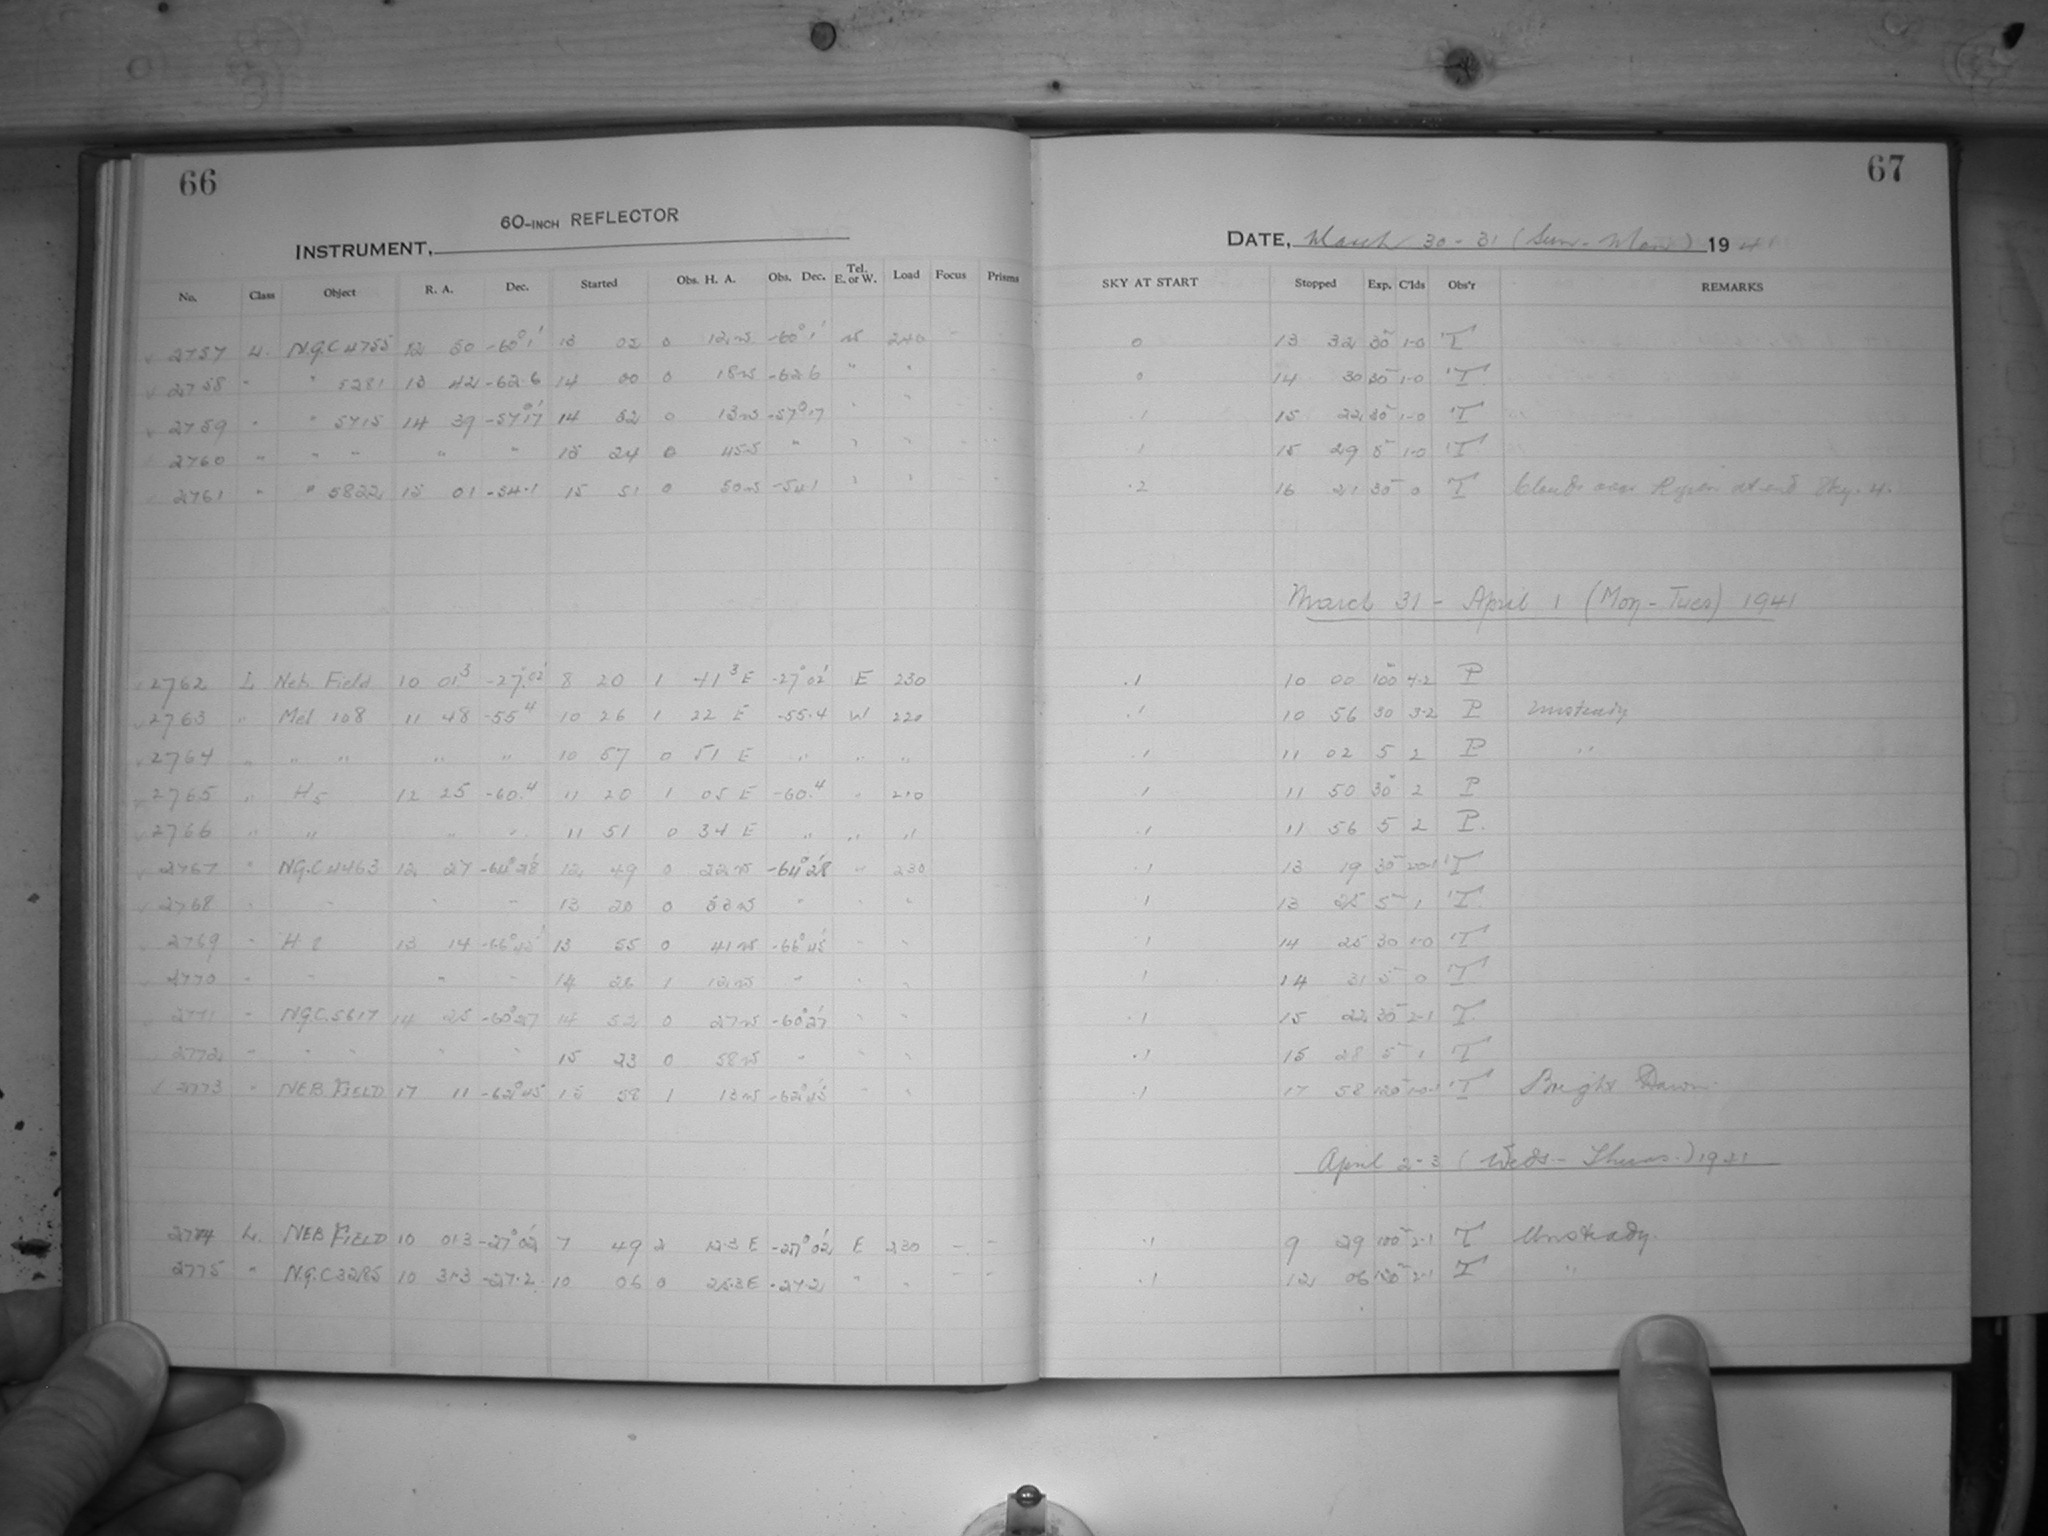 66
60-INCH REFLECTOR
INSTRUMENT,
No. Class Object R. A. Dec. Started Obs. H. A. Obs. Dec. Tel. E. or W. Load Focus Prisms
2757 L. N.G.C 4755 12 50 -60°1' 13 02 0 12 W -60°1' W 240
2758 " " 5281 13 42 -62.6 14 00 0 18 W -62.6 " "
2759 " " 5715 14 39 -57°17' 14 52 0 13 W -57°17 " "
2760 " " " " " 15 24 0 45 W " " "
2761 " " 5822 15 01 -54.1 15 51 0 50 W -54.1 " "
2762 L Neb. Field 10 01³ -27°02' 8 20 1 41³ E -27°02' E 230
2763 " Mel 108 11 48 -55⁴ 10 26 1 22 E -55.4 W 220
2764 " " " " " 10 57 0 51 E " " "
2765 " H5 12 25 -60.4 11 20 1 05 E -60.4 " 210
2766 " " " " 11 51 0 34 E " " "
2767 " N.G.C 4463 12 27 -64°28' 12 49 0 22 W -64°28' " 230
2768 " " " " 13 20 0 53 W " " "
2769 " H 13 14 -66°45' 13 55 0 41 W -66°45' " "
2770 " " " " 14 26 1 12 W " " "
2771 " N.G.C. 5617 14 25 -60°27 14 52 0 27 W -60°27 " "
2772 " " " " " 15 23 0 58 W " " "
2773 " NEB. FIELD 17 11 -62°45' 15 58 1 13 W -62°45' " "
2774 L. NEB FIELD 10 01.3 -27°02' 7 49 2 12.3 E -27°02' E 230 - -
2775 " N.G.C 3285 10 31.3 -27.2 10 06 0 25.3 E -27.2 " " - -
67
DATE, March 30-31 (Sun-Mon) 1941
SKY AT START Stopped Exp. C'lds Obs'r REMARKS
0 13 32 30 1-0 T
0 14 30 30 1-0 T
.1 15 22 30 1-0 T
.1 15 29 5 1-0 T
.2 16 21 30 0 T Clouds over Region at end Sky .4.
March 31 - April 1 (Mon-Tues) 1941
.1 10 00 100 4-2 P
.1 10 56 30 3-2 P Unsteady
.1 11 02 5 2 P "
.1 11 50 30 2 P
.1 11 56 5 2 P.
.1 13 19 30 T
.1 13 25 5 1 T.
.1 14 25 30 1-0 T
.1 14 31 5 0 T
.1 15 22 30 2-1 T.
.1 15 28 5 1 T
.1 17 58 120 T Bright Dawn.
April 2-3 (Weds-Thurs.) 1941
.1 9 29 100 2-1 T Unsteady.
.1 12 06 120 2-1 T "